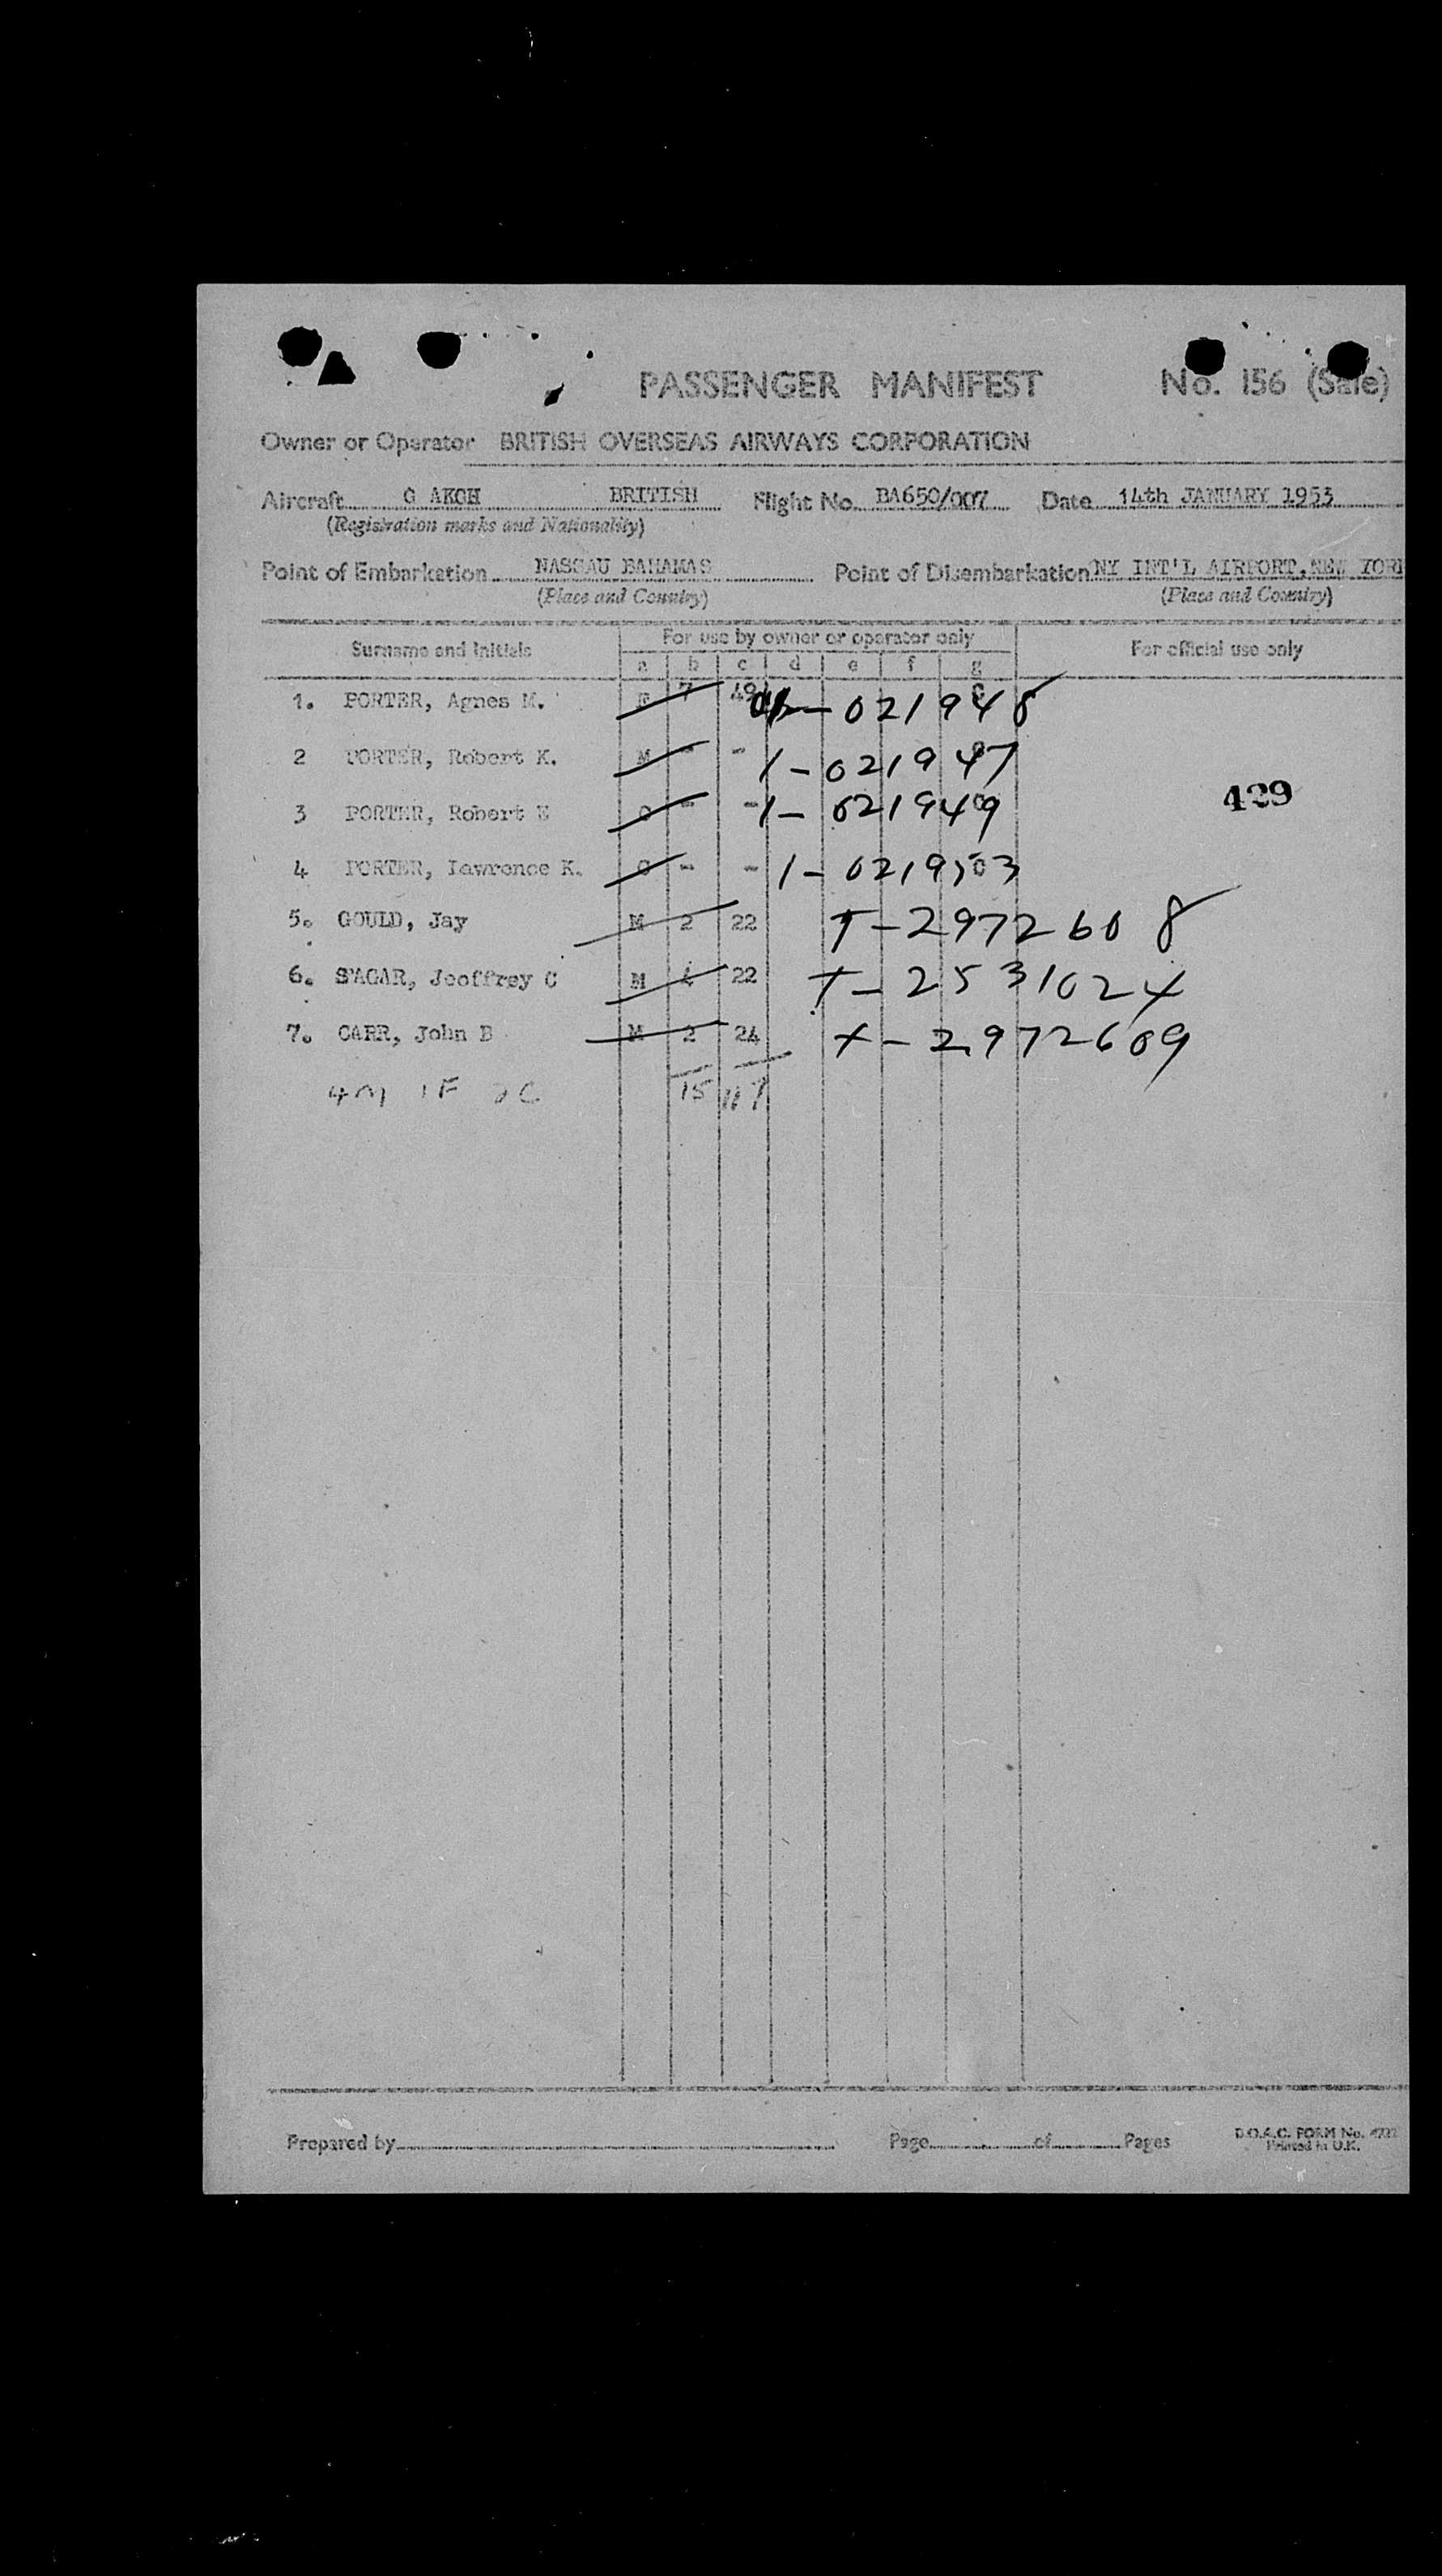 PASSENGER MANIFEST No. 156 (Sale)
Owner or Operator BRITISH OVERSEAS AIRWAYS CORPORATION
Aircraft G AKGH BRITISH Flight No. BA650/007 Date 14th JANUARY 1953
(Registration marks and Nationality)
Point of Embarkation NASSAU BAHAMAS Point of Disembarkation NY INT'L AIRPORT, NEW YORK
(Place and Country) (Place and Country)
Surname and Initials For use by owner or operator only For official use only
a b c d e f g
1. PORTER, Agnes M. F 7 49 - 021948
2 PORTER, Robert K. M - - 1-021947
3 PORTER, Robert E C - - 1-021949
429
4 PORTER, Lawrence K. C - - 1-021953
5. GOULD, Jay M 2 22 T-2972608
6. STAGAR, Jeoffrey C M 4 22 T-2531024
7. CARR, John B M 2 24 T-2972609
4M 1F 2C 15 117
Prepared by Page of Pages
B.O.A.C. FORM No.
Printed in U.K.